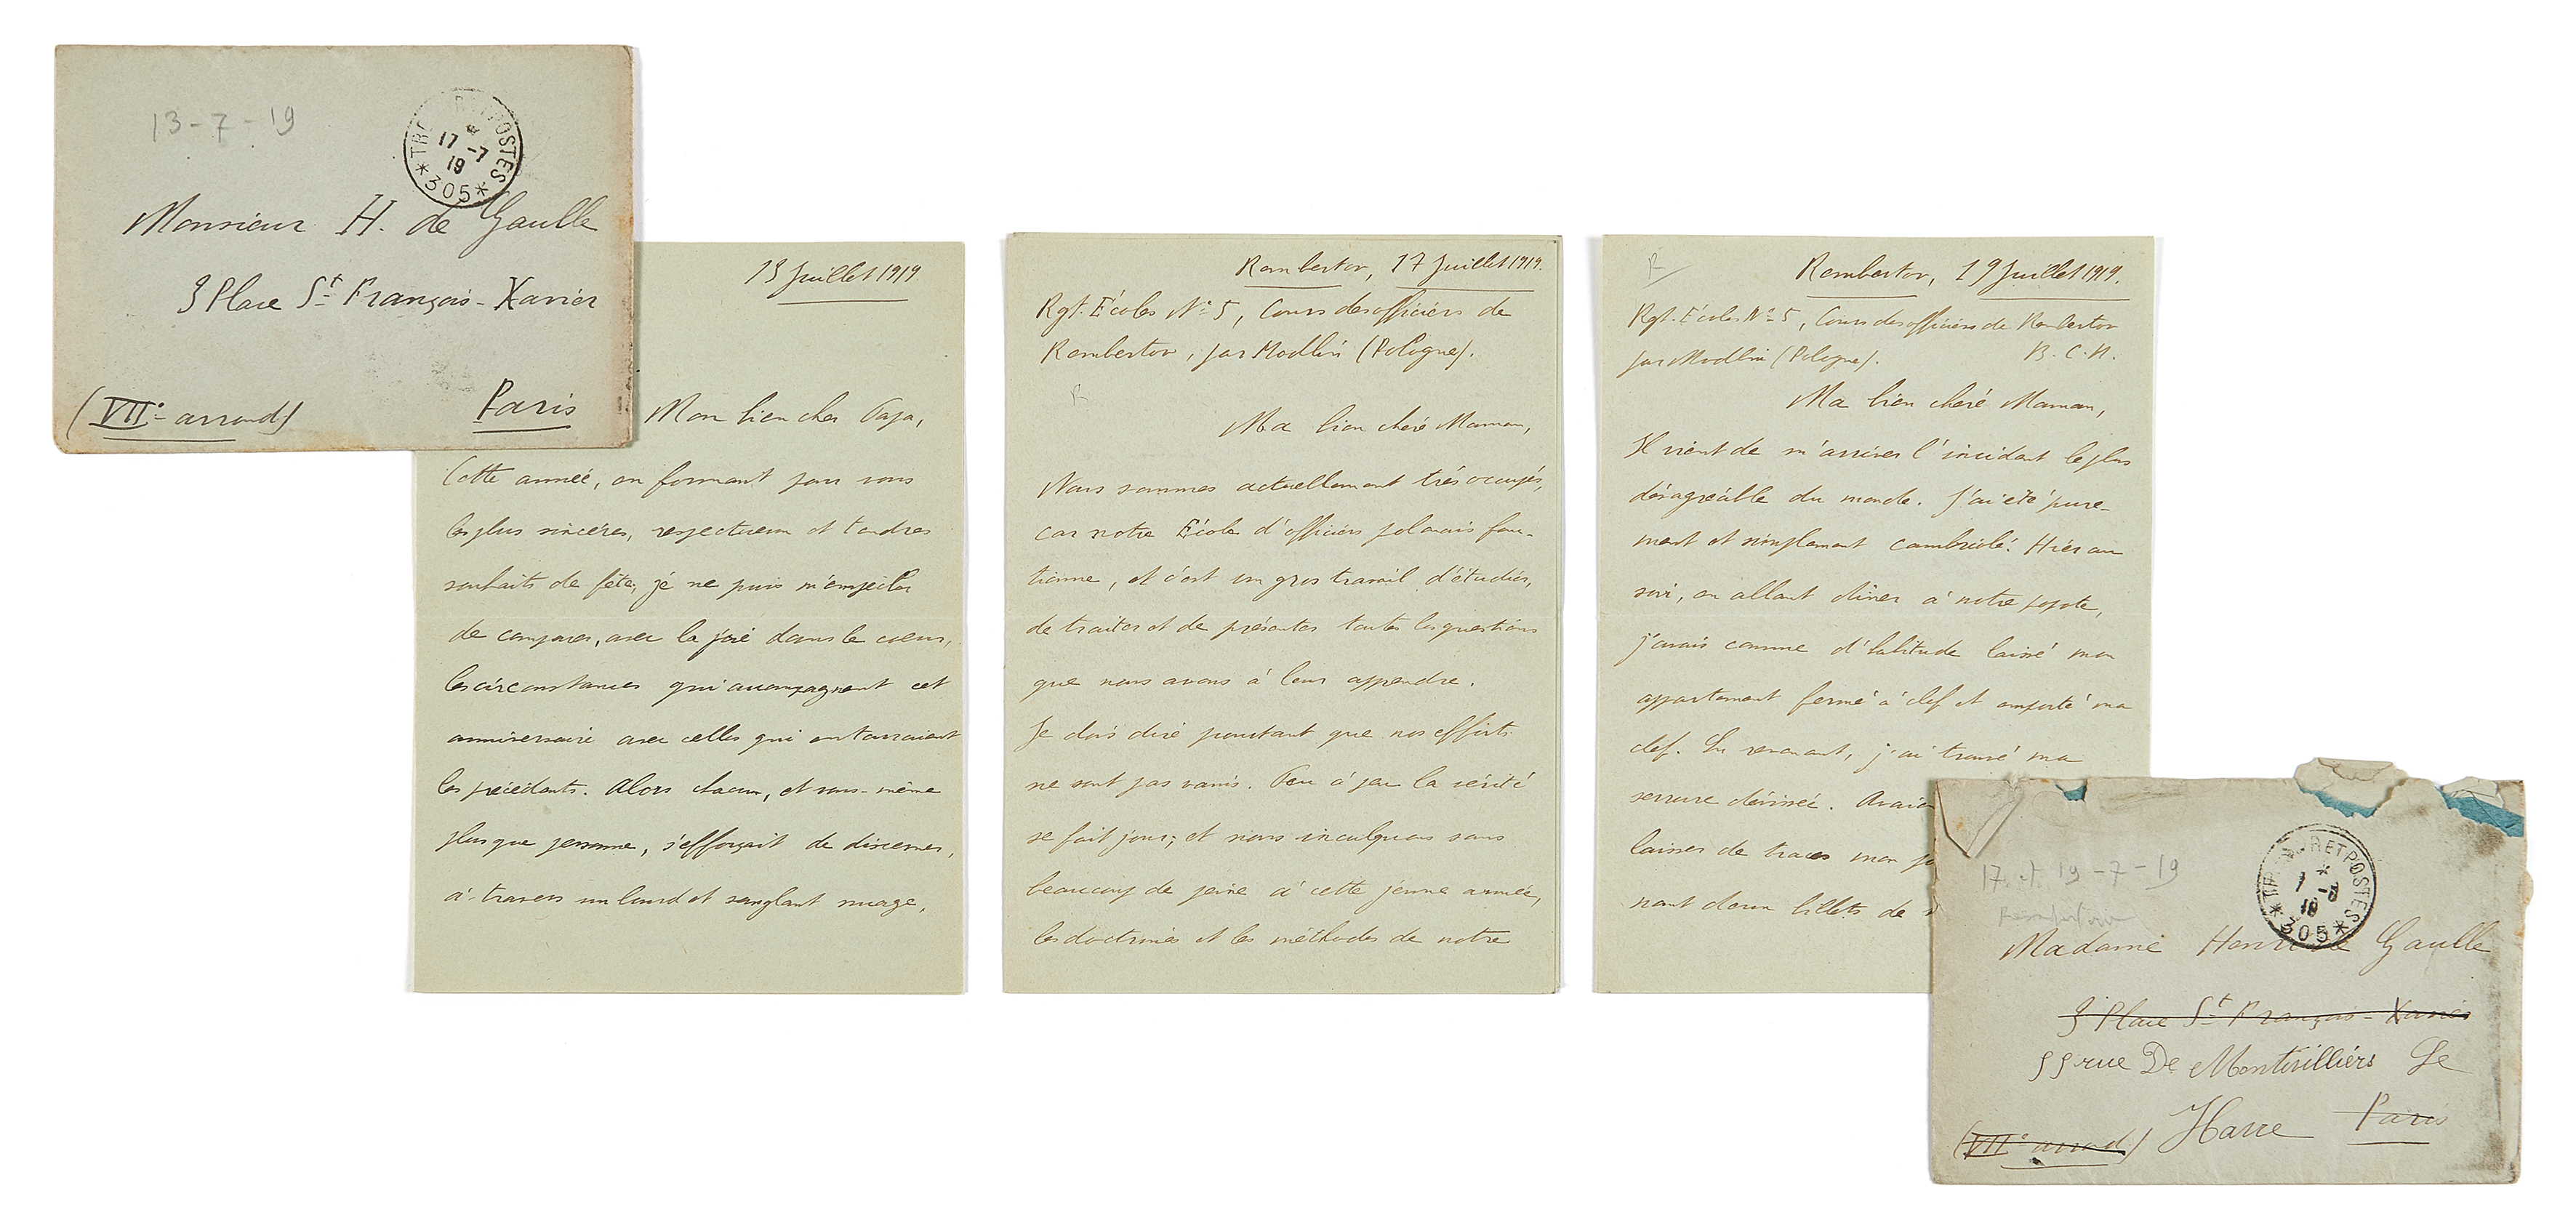 13-7-19
17 -7
19
*305*
Monsieur H. de Gaulle
3 Place St François-Xavier
(VIIe arrond) Paris
13 Juillet 1919.
Mon bien cher Papa,
Cette année, en formant pour vous
les plus sincères, respectueux et tendres
souhaits de fête, je ne puis m'empêcher
de comparer, avec la joie dans le coeur,
les circonstances qui accompagnent cet
anniversaire avec celles qui entouraient
les précédents. Alors chacun, et vous-même
plus que personne, s'efforçait de discerner,
à travers un lourd et sanglant nuage,
Rembertow, 17 Juillet 1919.
Rgt. Ecoles No 5, Cours des officiers de
Rembertow, par Modlin (Pologne).
R
Ma bien chère Maman,
Nous sommes actuellement très occupés,
car notre Ecole d'officiers polonais fonc-
tionne, et c'est un gros travail d'étudier,
de traiter et de présenter toutes les questions
que nous avons à leur apprendre.
Je dois dire pourtant que nos efforts
ne sont pas vains. Peu à peu la vérité
se fait jour; et nous inculquons sans
beaucoup de peine à cette jeune armée,
les doctrines et les méthodes de notre
R
Rembertow, 19 Juillet 1919.
Rgt. Ecoles No 5, Cours des officiers de Rembertow
par Modlin (Pologne). B.C.N.
Ma bien chère Maman,
Il vient de m'arriver l'incident le plus
désagréable du monde. J'ai été pure-
ment et simplement cambriolé. Hier au
soir, en allant dîner à notre popote,
j'avais comme d'habitude laissé mon
appartement fermé à clef et emporté ma
clef. En revenant, j'ai trouvé ma
serrure dévissée.
laisser de traces mon
nant deux billets de
17 et 19-7-19
Rembertow
ET POSTES
*305*
Madame Henri de Gaulle
3 Place St François-Xavier
55 rue De Montivilliers Le
(VIIe arrond) Havre Paris